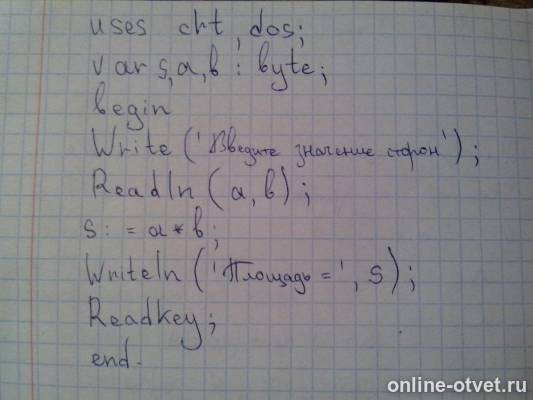 uses crt, dos;
var s,a,b : byte;
begin
Write ('Введите значение сторон');
Readln (a,b);
s:= a*b;
Writeln ('Площадь =', s);
Readkey;
end.
online-otvet.ru